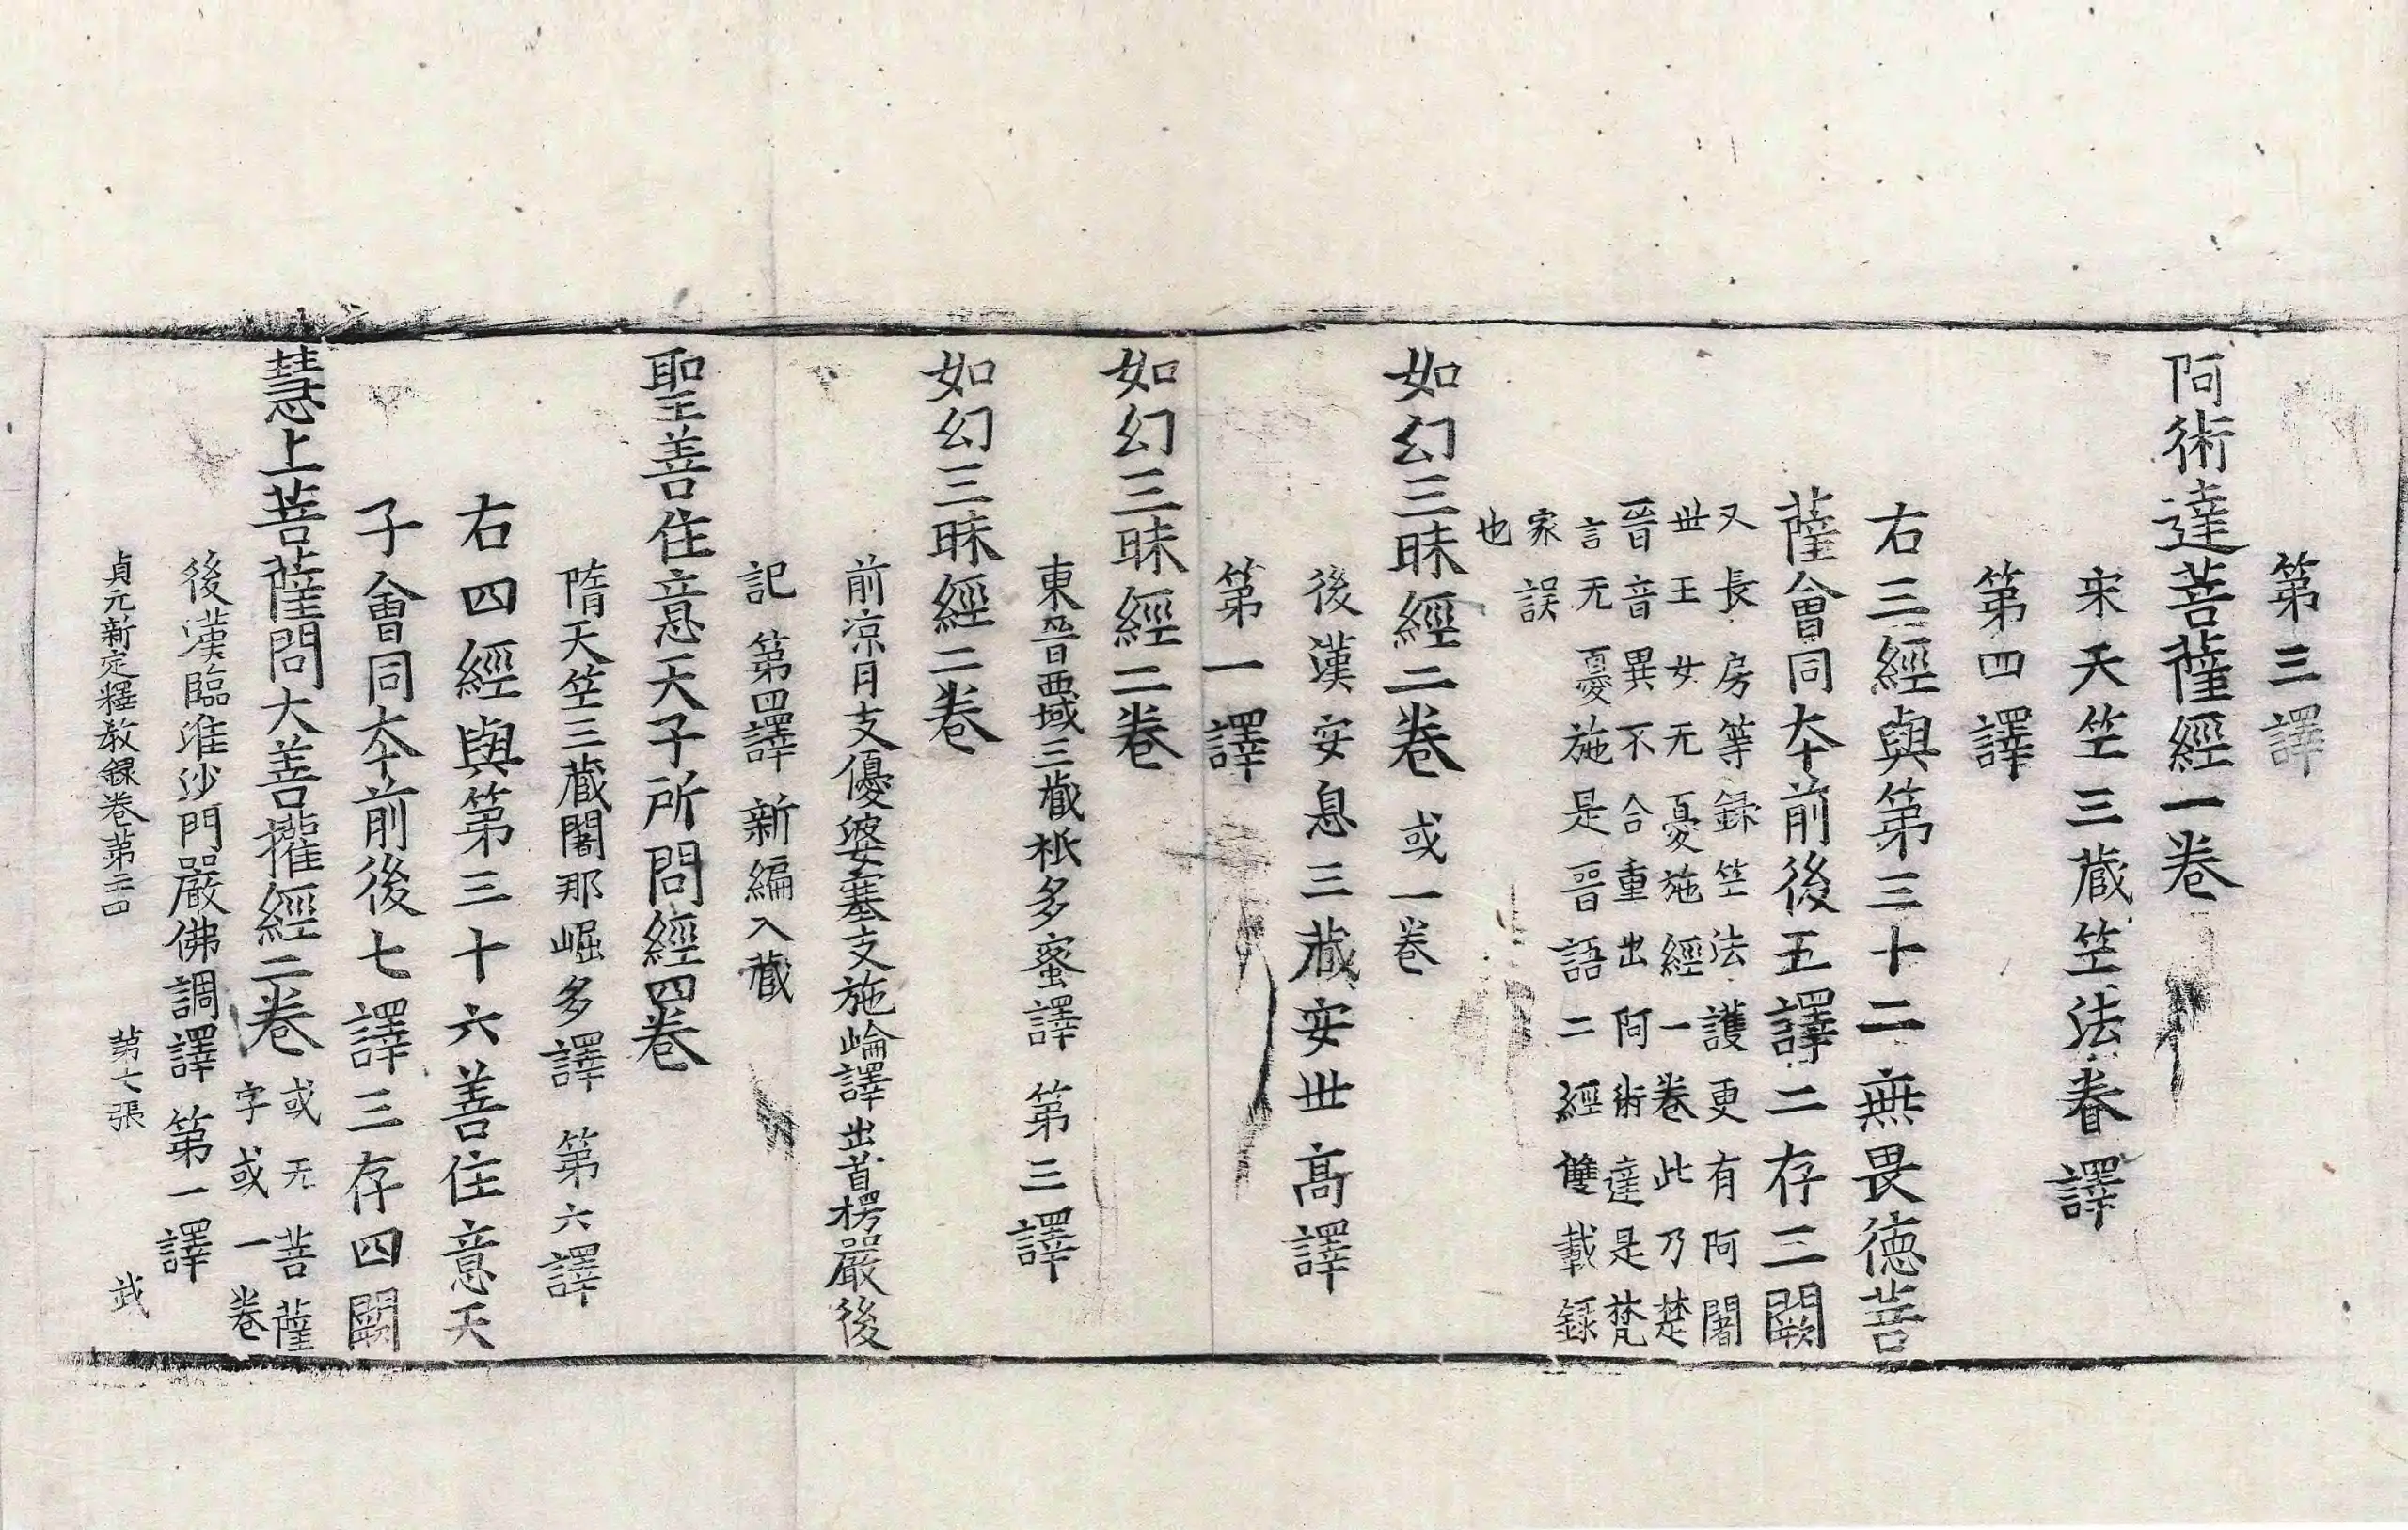 第三譯
阿術達菩薩經一卷
宋天竺三藏竺法眷譯
第四譯
右三經與第三十二無畏德菩
薩會同本前後五譯二存三闕
又長房等録竺法護更有阿闍
世王女无憂施經一卷此乃楚
晉音異不合重出阿術達是梵
言无憂施是晉語二經雙載録
家誤
也
如幻三昧經二卷 或一卷
後漢安息三藏安世高譯
第一譯
如幻三昧經二卷
東晉西域三藏祇多蜜譯 第三譯
如幻三昧經二卷
前涼月支優婆塞支施崘譯出首楞嚴後
記 第四譯 新編入藏
聖善住意天子所問經四卷
隋天竺三藏闍那崛多譯 第六譯
右四經與第三十六善住意天
子會同本前後七譯三存四闕
慧上菩薩問大善攉經二卷 或无菩薩
字或一卷
後漢臨淮沙門嚴佛調譯 第一譯
貞元新定釋教録卷第二四 第七張 武